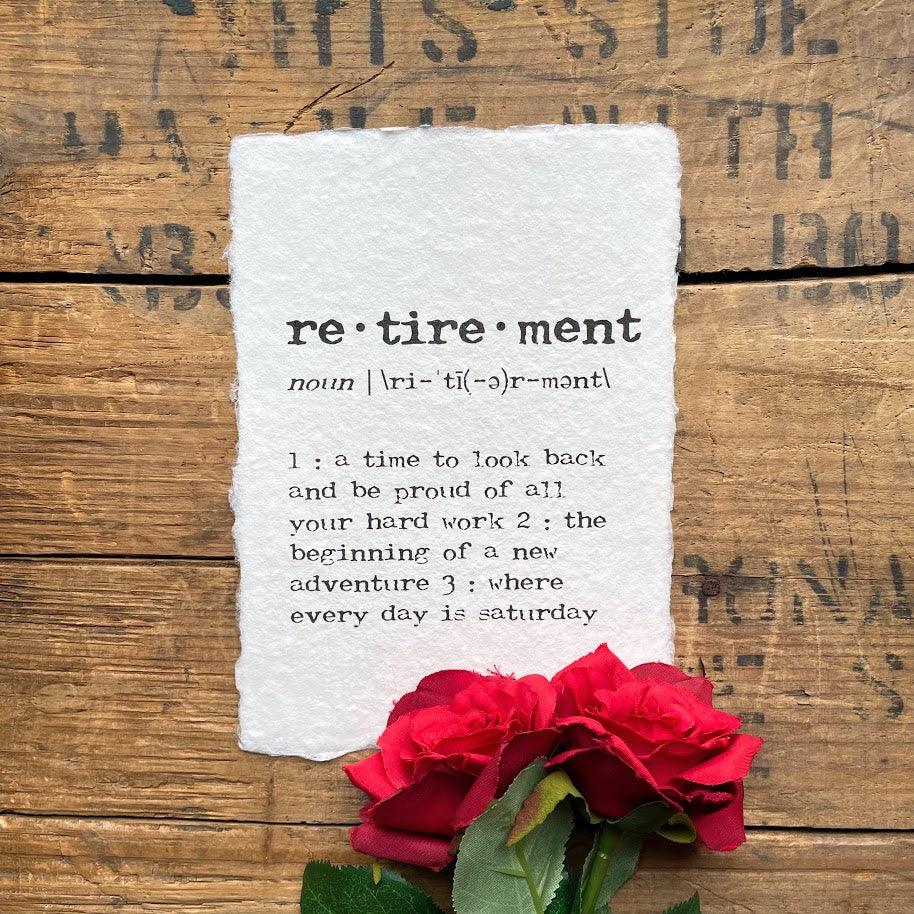 130
re·tire·ment
noun | \ri-ˈtī(-ə)r-mənt\
1 : a time to look back
and be proud of all
your hard work 2 : the
beginning of a new
adventure 3 : where
every day is saturday